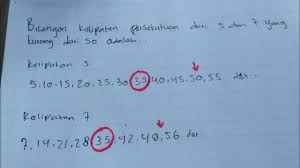 Bilangan kelipatan persekutuan dari 5 dan 7 yang
kurang dari 50 adalah...
Kelipatan 5
5.10.15.20.25.30 35 40.45.50,55 dst.
Kelipatan 7
7.14,21,28 35 42.49,56 dst